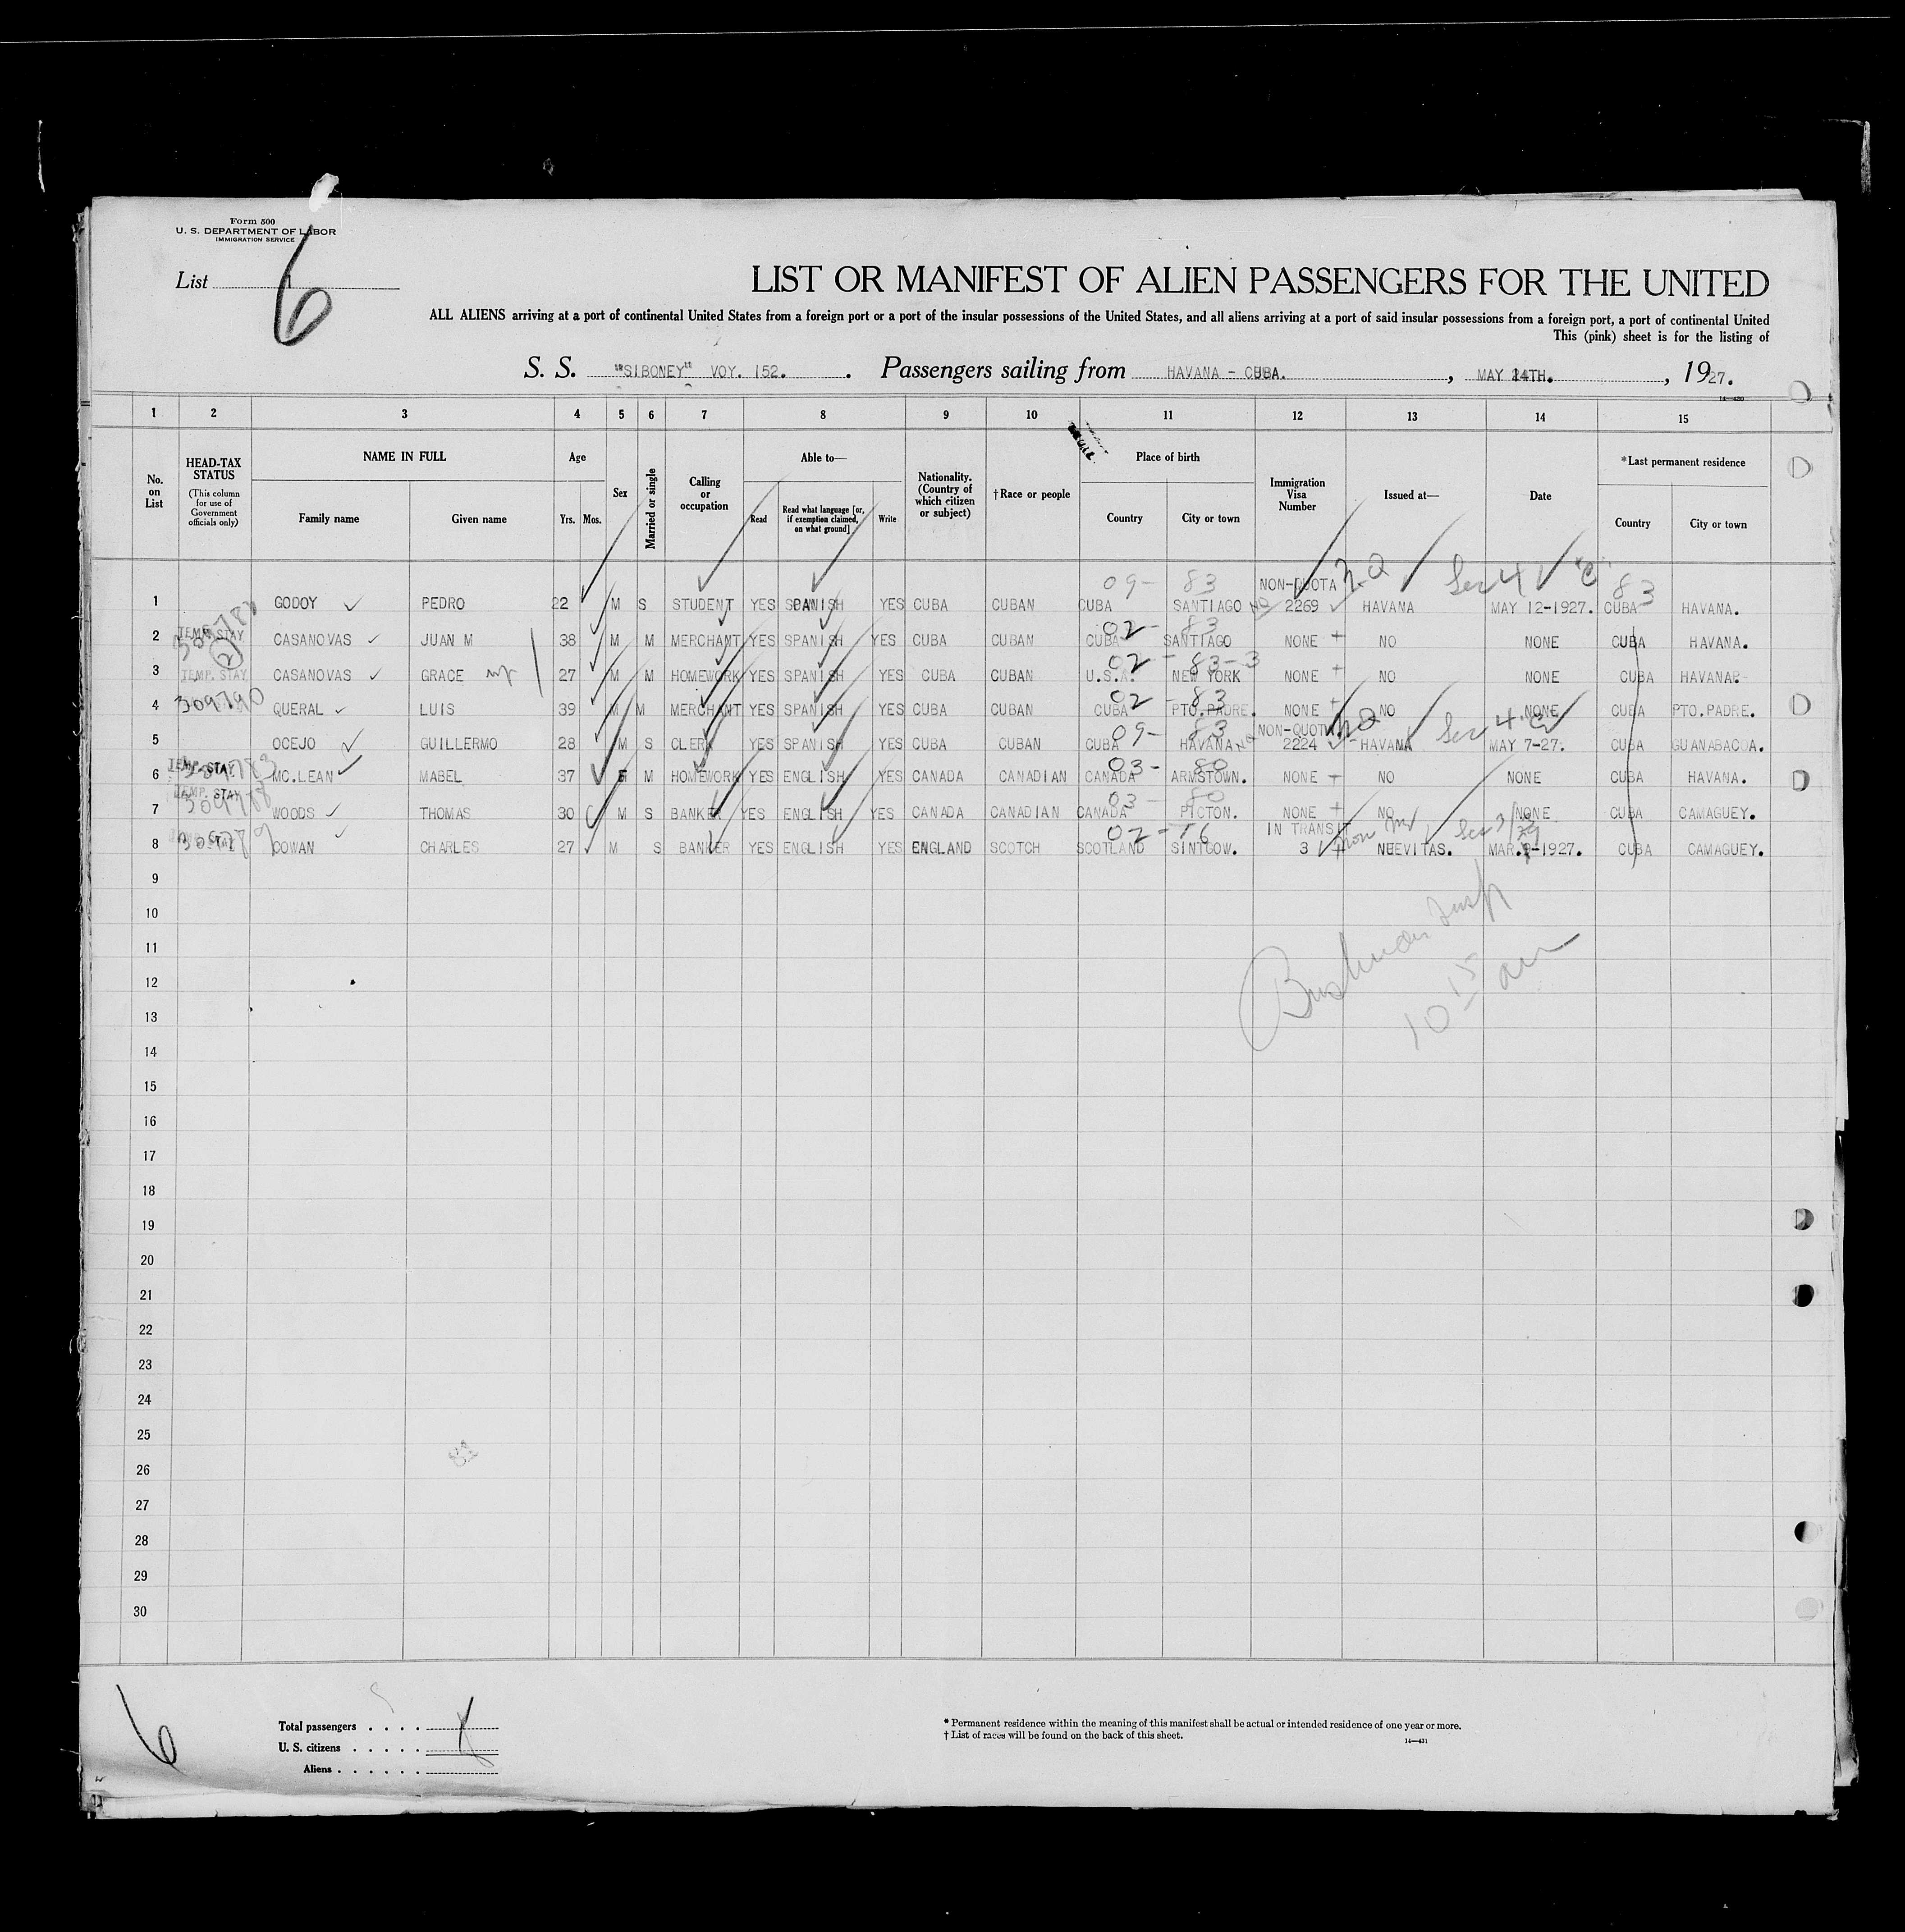 Form 500
U. S. DEPARTMENT OF LABOR
IMMIGRATION SERVICE
List 6
LIST OR MANIFEST OF ALIEN PASSENGERS FOR THE UNITED
ALL ALIENS arriving at a port of continental United States from a foreign port or a port of the insular possessions of the United States, and all aliens arriving at a port of said insular possessions from a foreign port, a port of continental United
This (pink) sheet is for the listing of
S. S. "SIBONEY" VOY. 152. Passengers sailing from HAVANA - CUBA. , MAY 14TH. , 1927.
14—430
1 2 3 4 5 6 7 8 9 10 11 12 13 14 15
No. on List
HEAD-TAX STATUS (This column for use of Government officials only)
NAME IN FULL Family name Given name
Age Yrs. Mos.
Sex
Married or single
Calling or occupation
Able to— Read Read what language [or, if exemption claimed, on what ground] Write
Nationality. (Country of which citizen or subject)
†Race or people
Place of birth Country City or town
Immigration Visa Number
Issued at—
Date
*Last permanent residence Country City or town
09- 83 NON-QUOTA Sec 4 C 83
1 GODOY PEDRO 22 M S STUDENT YES SPANISH YES CUBA CUBAN CUBA SANTIAGO 2269 HAVANA MAY 12-1927. CUBA HAVANA.
02- 83
2 TEMP. STAY CASANOVAS JUAN M 38 M M MERCHANT YES SPANISH YES CUBA CUBAN CUBA SANTIAGO NONE NO NONE CUBA HAVANA.
02 - 83-3
3 TEMP. STAY CASANOVAS GRACE 27 M M HOMEWORK YES SPANISH YES CUBA CUBAN U.S.A. NEW YORK NONE NO NONE CUBA HAVANA.
02 - 83
4 309790 QUERAL LUIS 39 M M MERCHANT YES SPANISH YES CUBA CUBAN CUBA PTO.PADRE. NONE NO NONE CUBA PTO.PADRE.
09- 83 NON-QUOTA Sec 4-C
5 OCEJO GUILLERMO 28 M S CLERK YES SPANISH YES CUBA CUBAN CUBA HAVANA 2224 HAVANA MAY 7-27. CUBA GUANABACOA.
03- 80
6 TEMP. STAY MC.LEAN MABEL 37 F M HOMEWORK YES ENGLISH YES CANADA CANADIAN CANADA ARMSTOWN. NONE NO NONE CUBA HAVANA.
03- 80
7 TEMP. STAY 309788 WOODS THOMAS 30 M S BANKER YES ENGLISH YES CANADA CANADIAN CANADA PICTON. NONE NO NONE CUBA CAMAGUEY.
02-76 IN TRANSIT Sec 3
8 309789 COWAN CHARLES 27 M S BANKER YES ENGLISH YES ENGLAND SCOTCH SCOTLAND SINTGOW. 3 NUEVITAS. MAR. -1927. CUBA CAMAGUEY.
9
10
11
12
13
14
15
16
17
18
19
20
21
22
23
24
25
26
27
28
29
30
10 15 am
6
Total passengers . . . .
U. S. citizens . . . . .
Aliens . . . . . .
* Permanent residence within the meaning of this manifest shall be actual or intended residence of one year or more.
† List of races will be found on the back of this sheet.
14—431